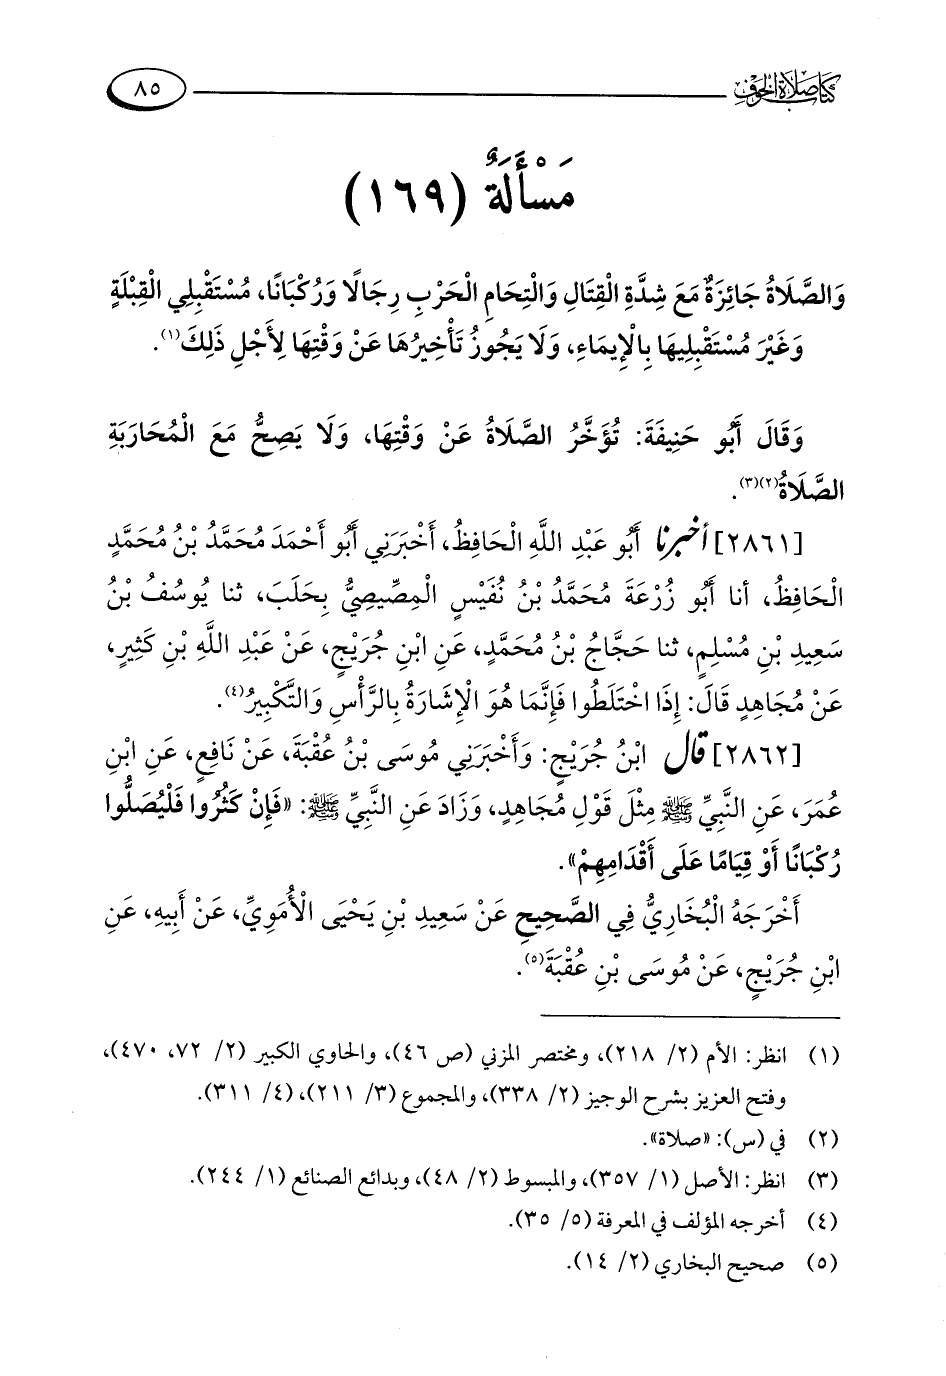 كتاب صلاة الخوف
٨٥
مَسْأَلَةٌ (١٦٩)
وَالصَّلَاةُ جَائِزَةٌ مَعَ شِدَّةِ الْقِتَالِ وَالْتِحَامِ الْحَرْبِ رِجَالًا وَرُكْبَانًا، مُسْتَقْبِلِي الْقِبْلَةِ
وَغَيْرَ مُسْتَقْبِلِيهَا بِالْإِيمَاءِ، وَلَا يَجُوزُ تَأْخِيرُهَا عَنْ وَقْتِهَا لِأَجْلِ ذَلِكَ(١).
وَقَالَ أَبُو حَنِيفَةَ: تُؤَخَّرُ الصَّلَاةُ عَنْ وَقْتِهَا، وَلَا يَصِحُّ مَعَ الْمُحَارَبَةِ
الصَّلَاةُ(٢)(٣).
[٢٨٦١] أخبرنا أَبُو عَبْدِ اللَّهِ الْحَافِظُ، أَخْبَرَنِي أَبُو أَحْمَدَ مُحَمَّدُ بْنُ مُحَمَّدٍ
الْحَافِظُ، أنا أَبُو زُرْعَةَ مُحَمَّدُ بْنُ نُفَيْسٍ الْمِصِّيصِيُّ بِحَلَبَ، ثنا يُوسُفُ بْنُ
سَعِيدِ بْنِ مُسْلِمٍ، ثنا حَجَّاجُ بْنُ مُحَمَّدٍ، عَنِ ابْنِ جُرَيْجٍ، عَنْ عَبْدِ اللَّهِ بْنِ كَثِيرٍ،
عَنْ مُجَاهِدٍ قَالَ: إِذَا اخْتَلَطُوا فَإِنَّمَا هُوَ الْإِشَارَةُ بِالرَّأْسِ وَالتَّكْبِيرُ(٤).
[٢٨٦٢] قال ابْنُ جُرَيْجٍ: وَأَخْبَرَنِي مُوسَى بْنُ عُقْبَةَ، عَنْ نَافِعٍ، عَنِ ابْنِ
عُمَرَ، عَنِ النَّبِيِّ ﷺ مِثْلَ قَوْلِ مُجَاهِدٍ، وَزَادَ عَنِ النَّبِيِّ ﷺ: «فَإِنْ كَثُرُوا فَلْيُصَلُّوا
رُكْبَانًا أَوْ قِيَامًا عَلَى أَقْدَامِهِمْ».
أَخْرَجَهُ الْبُخَارِيُّ فِي الصَّحِيحِ عَنْ سَعِيدِ بْنِ يَحْيَى الْأُمَوِيِّ، عَنْ أَبِيهِ، عَنِ
ابْنِ جُرَيْجٍ، عَنْ مُوسَى بْنِ عُقْبَةَ(٥).
(١) انظر: الأم (٢/ ٢١٨)، ومختصر المزني (ص ٤٦)، والحاوي الكبير (٢/ ٧٢، ٤٧٠)،
وفتح العزيز بشرح الوجيز (٢/ ٣٣٨)، والمجموع (٣/ ٢١١)، (٤/ ٣١١).
(٢) في (س): «صلاة».
(٣) انظر: الأصل (١/ ٣٥٧)، والمبسوط (٢/ ٤٨)، وبدائع الصنائع (١/ ٢٤٤).
(٤) أخرجه المؤلف في المعرفة (٥/ ٣٥).
(٥) صحيح البخاري (٢/ ١٤).